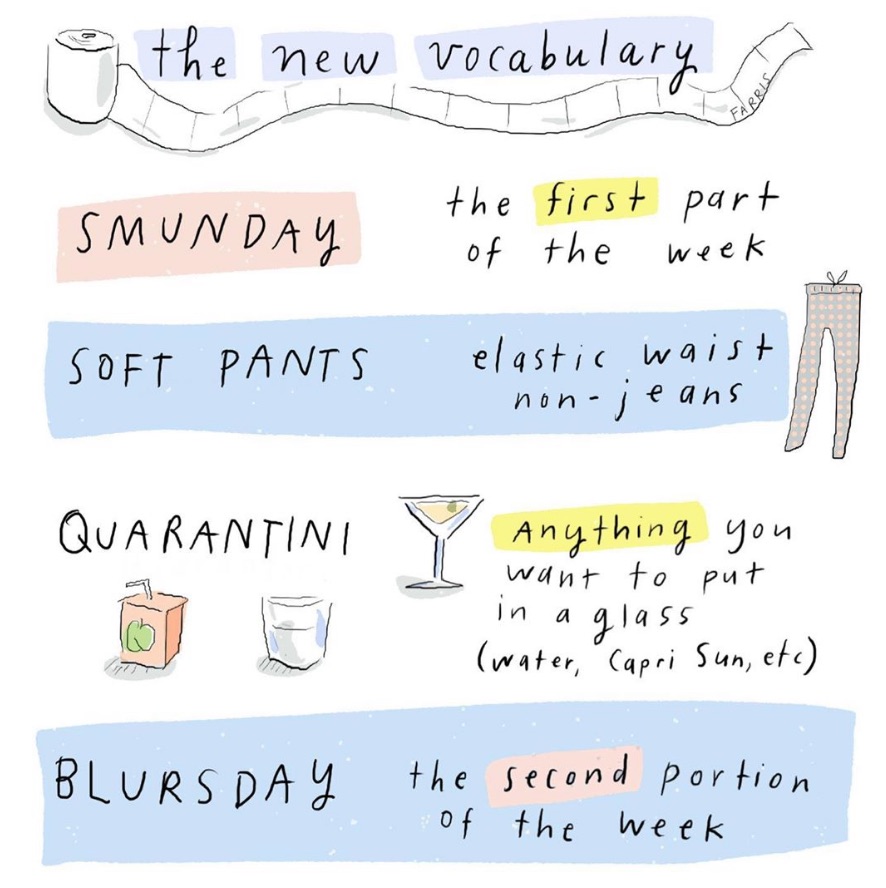 the new vocabulary
FARRIS
SMUNDAY
the first part
of the week
SOFT PANTS
elastic waist
non-jeans
QUARANTINI
Anything you
want to put
in a glass
(water, Capri Sun, etc)
BLURSDAY
the second portion
of the week